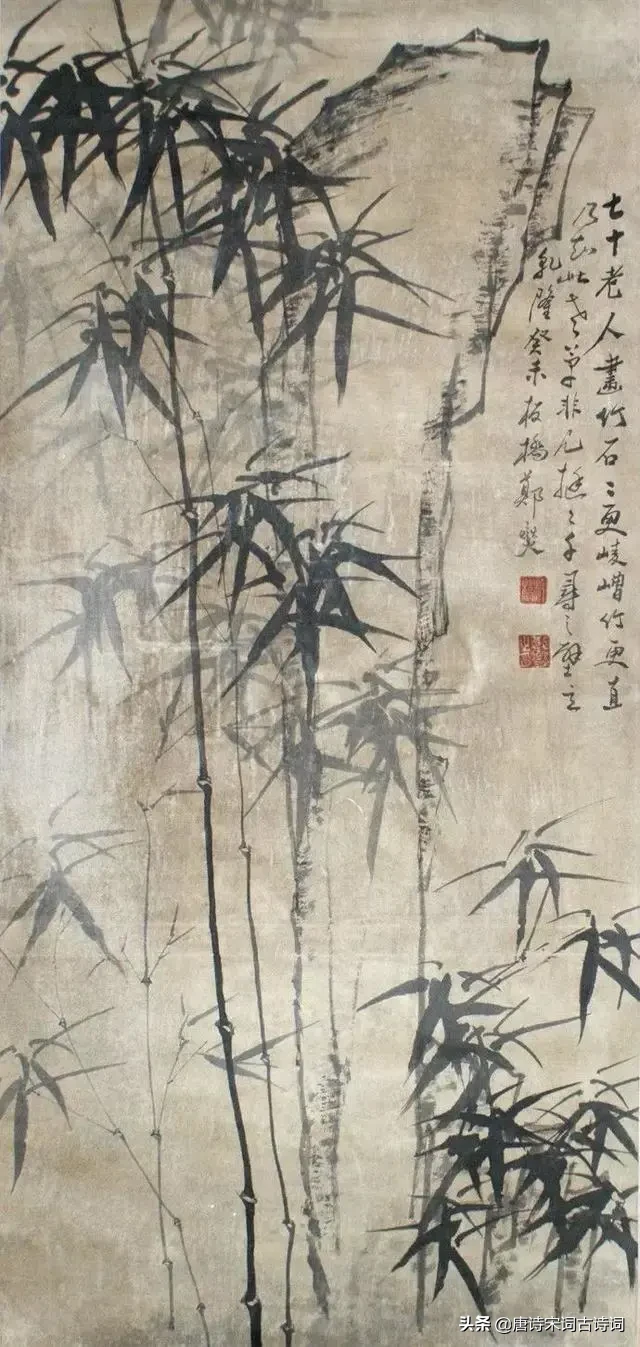 七十老人畫竹石〻更崚嶒竹更直
乃知此老筆非凡挺〻千尋之壁立
乾隆癸未板橋鄭燮
头条 @唐诗宋词古诗词